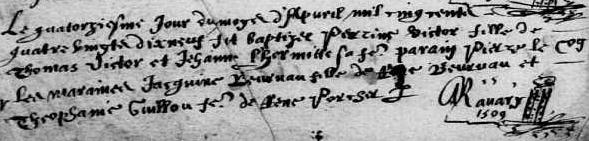 Le quatorziesme Jour du moys d'Apvril mil cinq centz
quatre vingts dix neuf fut baptizee Perrine Victor fille de
Thomas Victor et Jehanne Lhermitte sa fe parain Pierre le Coq
Les maraines Jacquine Beuruan fille de Rene Beuruan et
Theophanie Guillou fe de Rene Porcher
Ravary
1599